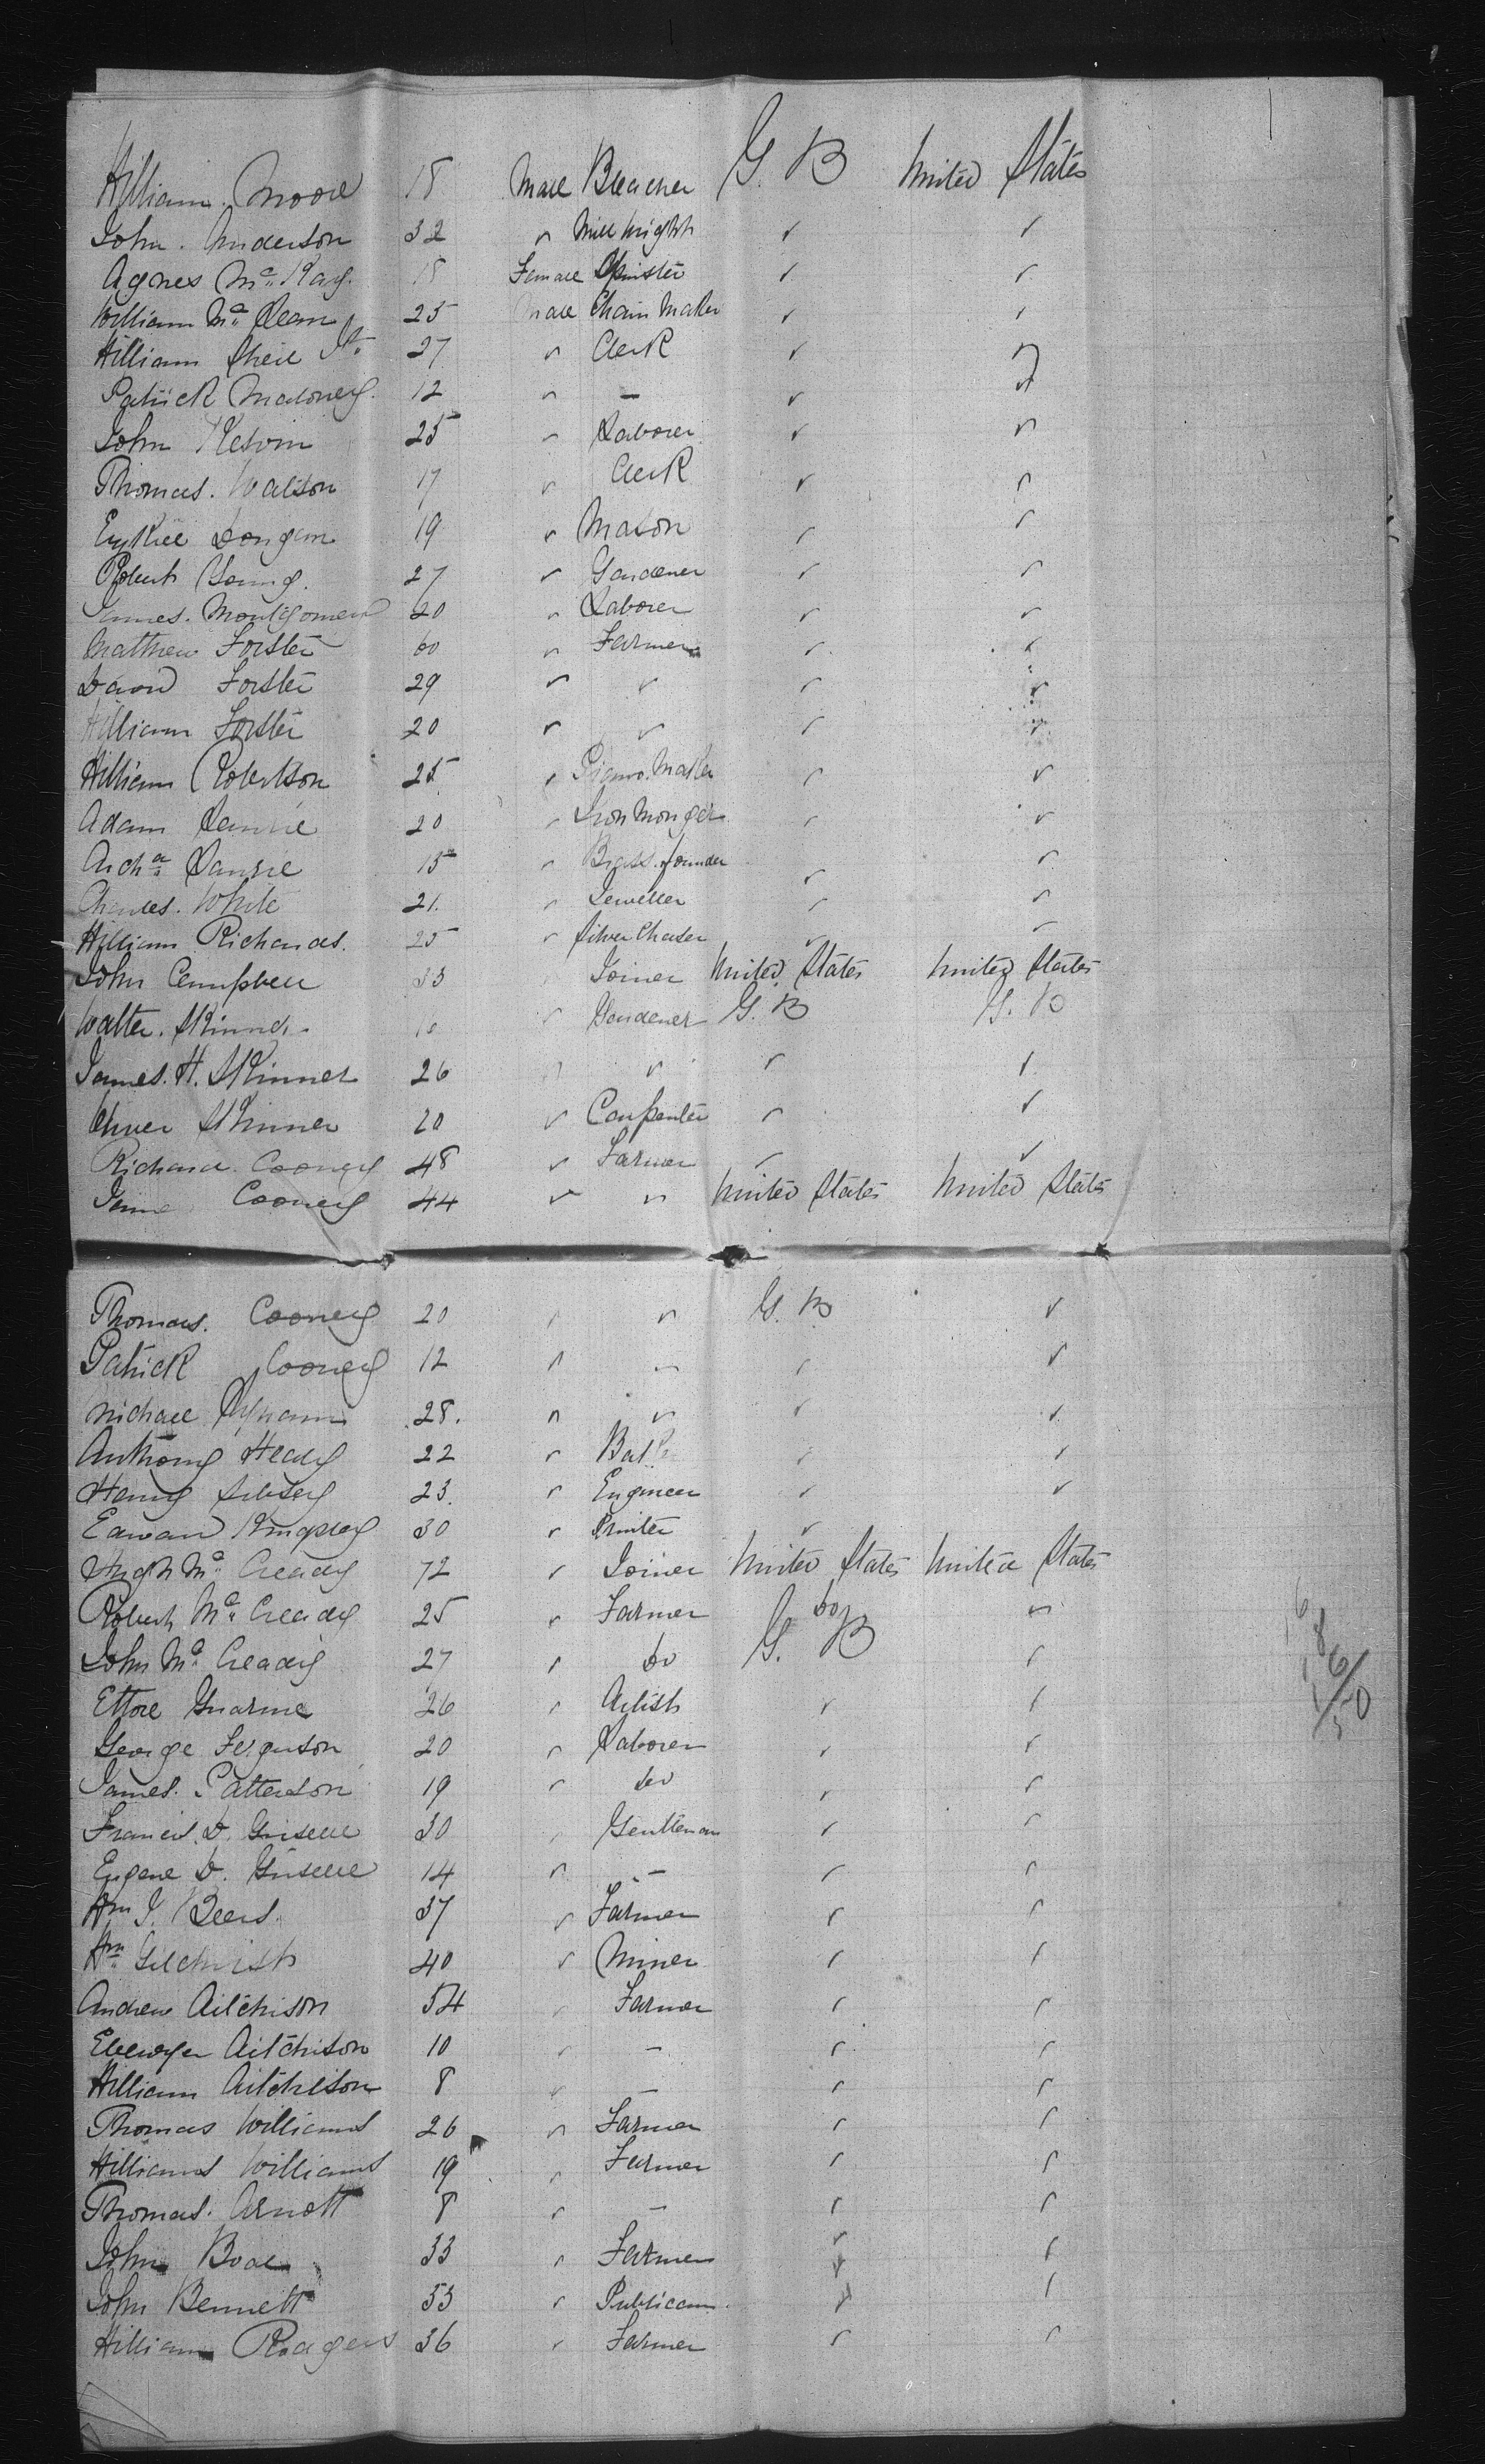 William Moore 18 Male Bleacher G. B United States
John Anderson 32 " Mill wright " "
Agnes Mc Kay 18 Female Spinster " "
William Mc Lean 25 Male Chain Maker " "
William Sheil Jr. 27 " Clerk " "
Patrick Maloney 12 " — " "
John 25 " Laborer " "
Thomas Watson 17 " Clerk " "
19 " Mason " "
Robert Young 27 " Gardener " "
James Montgomery 20 " Laborer " "
Mathew Forster 60 " Farmer " "
David Forster 29 " " " "
William Forster 20 " " " "
William Robertson 25 " Piano Maker " "
Adam Laurie 20 " Iron Monger " "
Archd Laurie 15 " Brass founder " "
Charles White 21 " Jeweller " "
William Richards 25 " Silver Chaser " "
John Campbell 33 " Joiner United States United States
Walter Skinner " Gardener G. B G. B
James H. Skinner 26 " " " "
Oliver Skinner 20 " Carpenter " "
Richard Cooney 48 " Farmer " "
Cooney 44 " " United States United States
Thomas Cooney 20 " " G. B "
Patrick Cooney 12 " " " "
Michael 28 " " " "
Anthony Healy 22 " Baker " "
Henry 23 " Engineer " "
Edward Kingsley 30 " Printer "
Hugh Mc Cready 72 " Joiner United States United States
Robert Mc Cready 25 " Farmer do "
John Mc Cready 27 " do G. B "
Ettore 26 " Artist " "
George Ferguson 20 " Laborer " "
James Patterson 19 " do " "
Francis D. Griselle 30 " Gentleman " "
Eugene D. Griselle 14 " — " "
Wm J. Beers 37 " Farmer " "
Wm Gilchrist 40 " Miner " "
Andrew Aitchison 54 " Farmer " "
Aitchison 10 " — " "
William Aitchison 8 " — " "
Thomas Williams 26 " Farmer " "
Williams Williams 19 " Farmer " "
Thomas Arnott 8 " — " "
John Boal 33 " Farmer " "
John Bennett 53 " Publican " "
William Rodgers 36 " Farmer " "